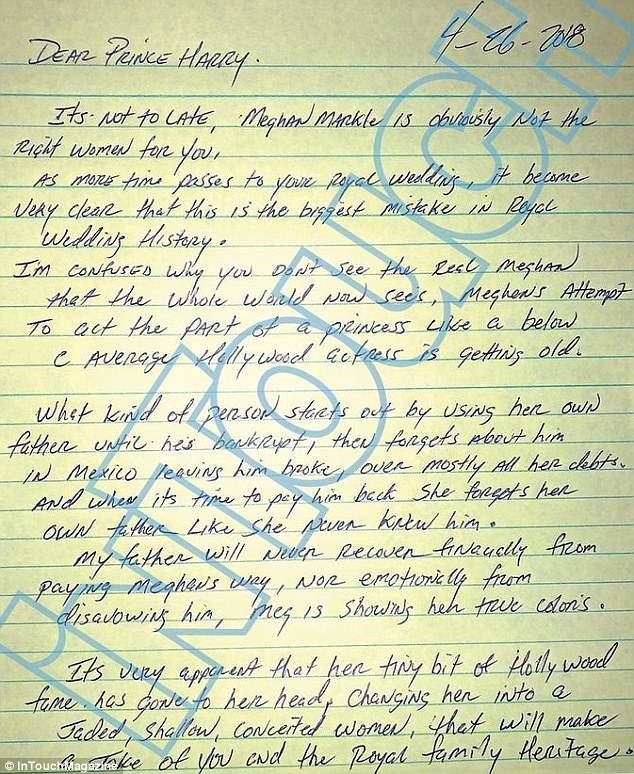 4-26-2018
DEAR PRINCE HARRY.
Its not to LATE, Meghan MARKle is obviously Not the
Right Women for you.
As more time passes to your Royal Wedding, it become
Very clear that this is the biggest mistake in Royal
Wedding History.
I'm CONFUSED why you DON't See the Real Meghan
that the whole world Now sees, Meghan's Attempt
To act the PART of a princess Like a below
C AVERAGE Hollywood actress is getting old.
What kind of person starts out by using her own
father until he's bankrupt, then forgets About him
IN Mexico leaving him broke, over mostly all her debts.
And when its time to pay him back She forgets her
OWN father Like She Never Knew him.
My father will Never Recover finacially from
paying Meghans way, NOR emotionally from
disavowing him, Meg is Showing her true colors.
It's very apparent that her tiny bit of Hollywood
fame has gone to her head, Changing her into a
Jaded, Shallow, conceited women, that will make
a Joke of you and the Royal family Heritage.
INTOUCH
© InTouchMagazine